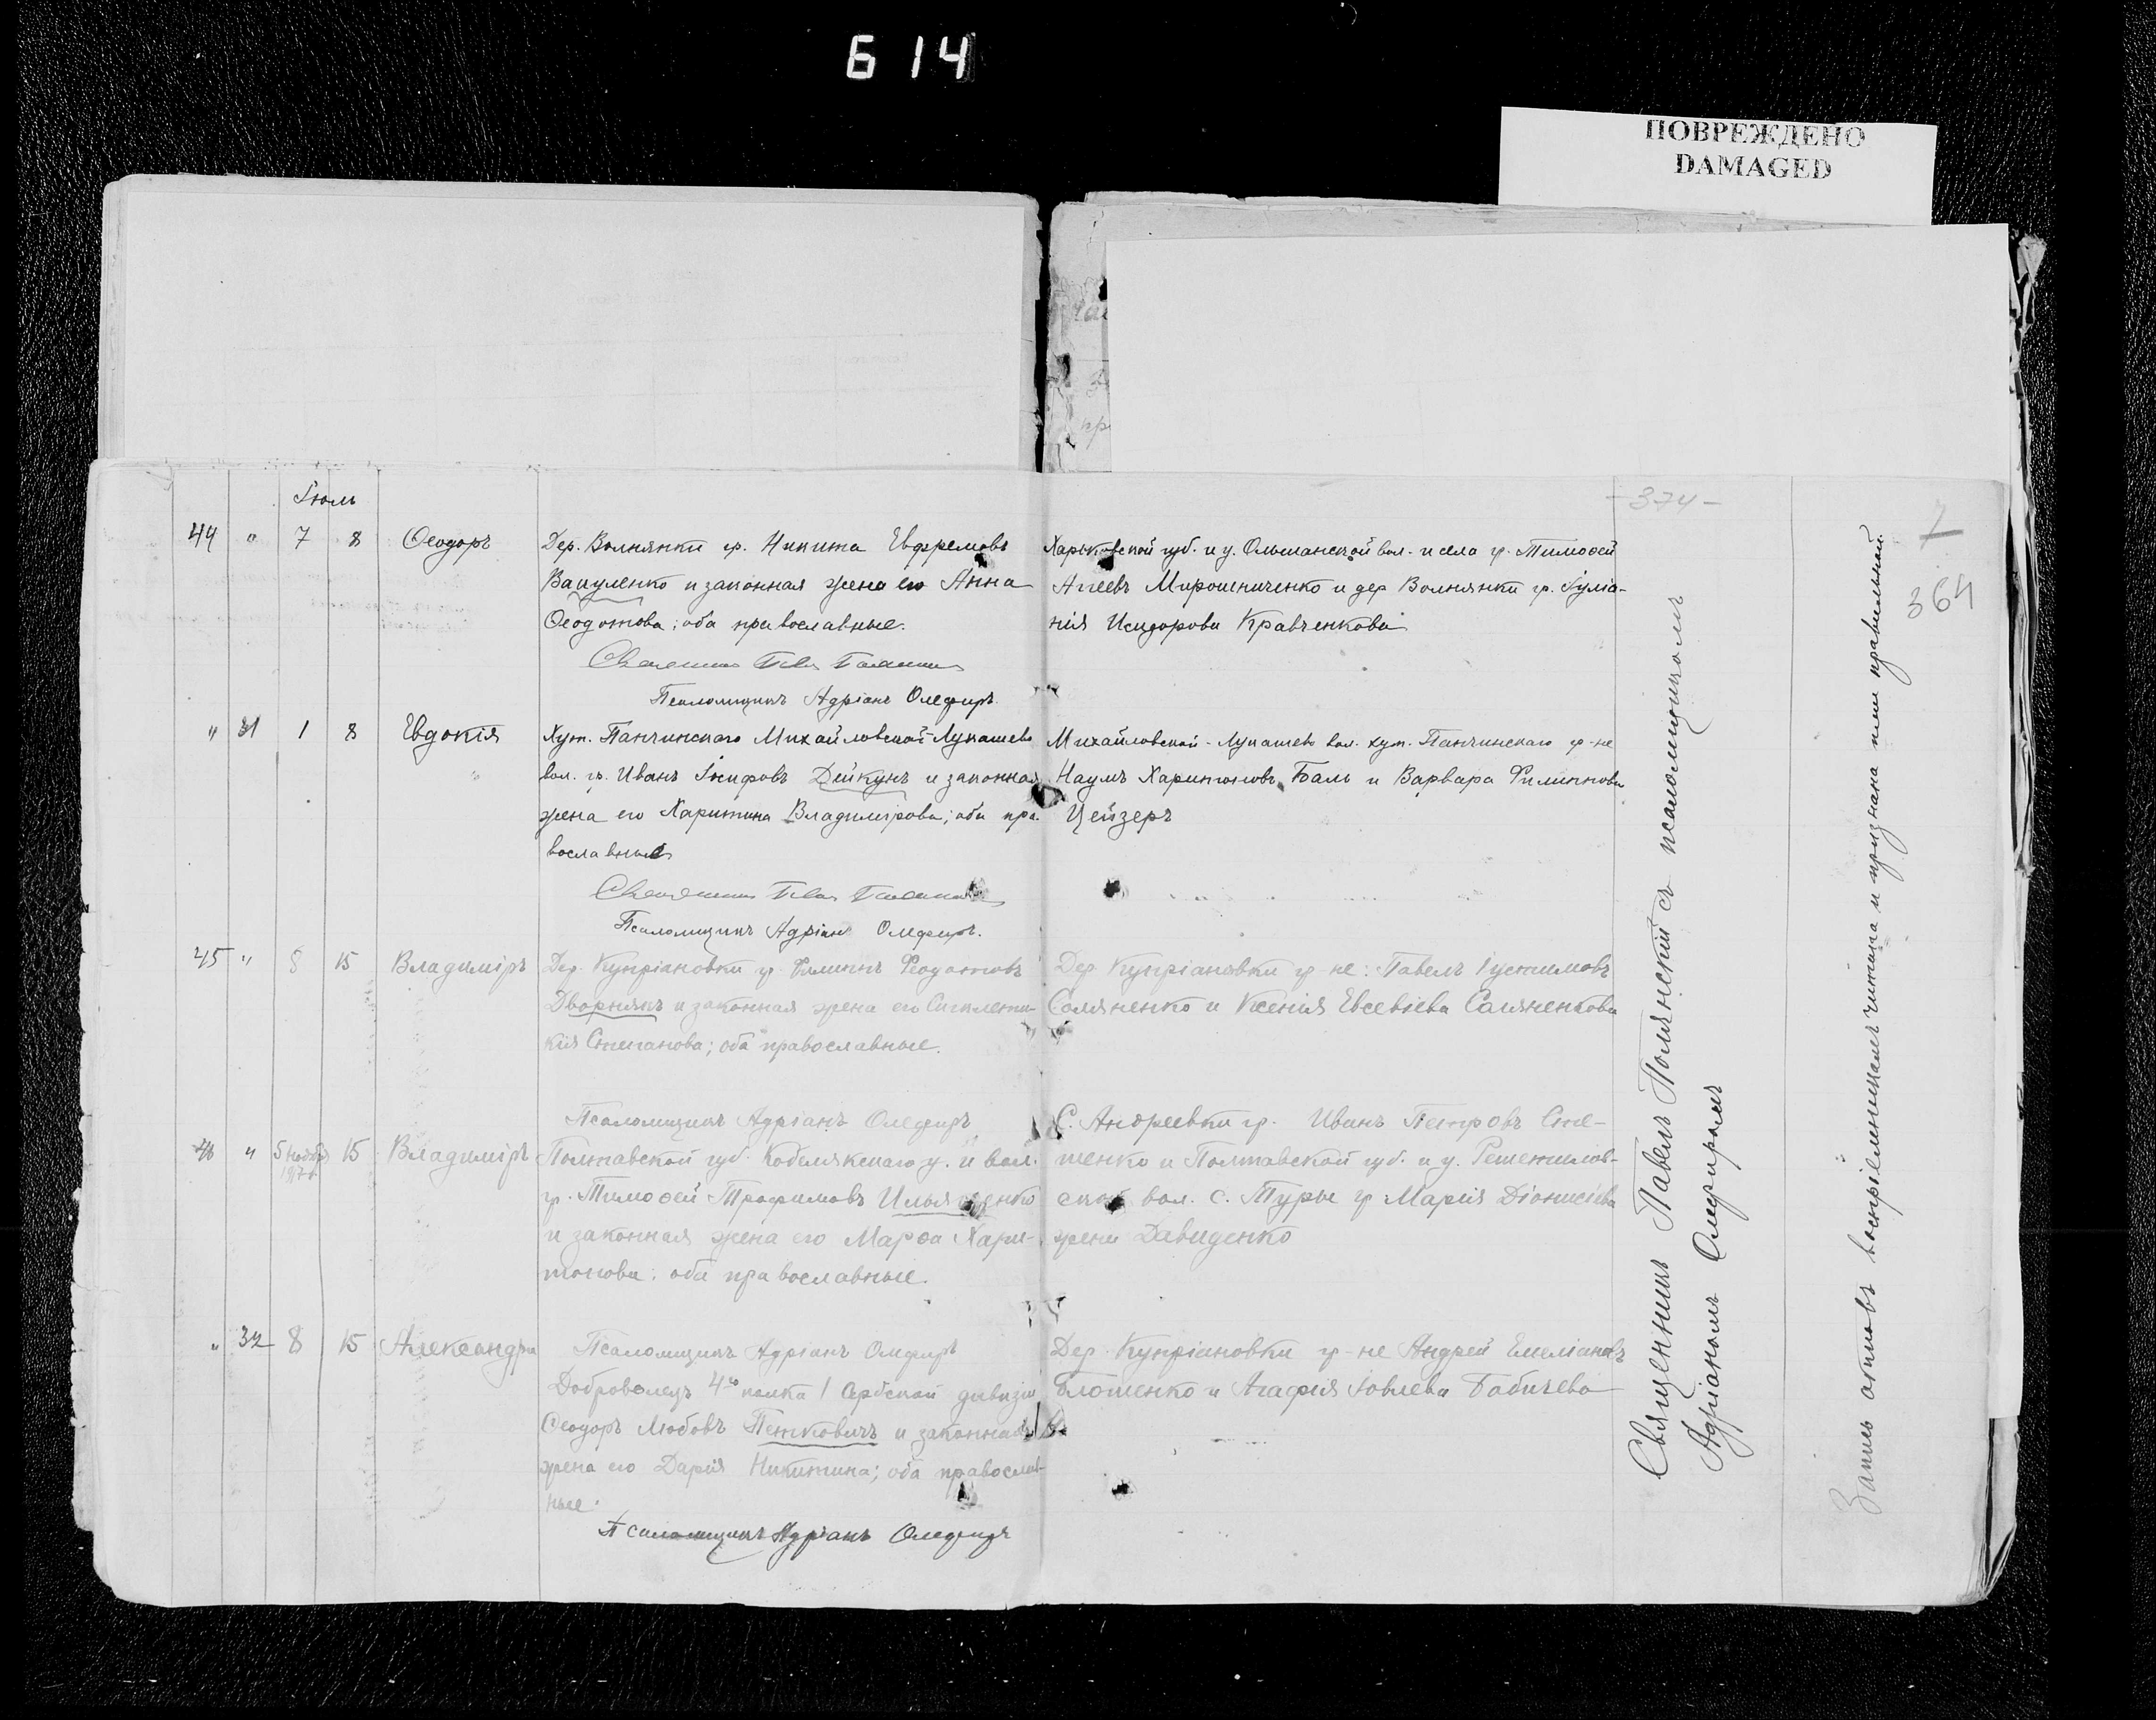 614
ПОВРЕЖДЕНО
DAMAGED
-374-
364
Іюль
44 " 7 8 Ѳеодоръ
Дер. Волнянки гр. Никита Евфремовъ
Вакуленко и законная жена его Анна
Ѳеодотова; оба православные.
Псаломщикъ Адріанъ Олефиръ.
Харьковской губ. и у. Ольшанской вол. и села гр. Тимоѳей
Агеевъ Мирошниченко и дер Волнянки гр. Іулiа-
нія Исидорова Кравченкова
" 31 1 8 Евдокія
Хут. Панчинскаго Михайловской-Лукашево
вол. гр. Иванъ Іосифовъ Дейкунъ и законная
жена его Харитина Владимірова; оба пра-
вославные
Псаломщикъ Адріанъ Олефиръ.
Михайловской-Лукашево вол. хут. Панчинскаго гр-не
Наумъ Харитоновъ Баль и Варвара Филиппова
Цейзеръ
45 " 8 15 Владиміръ
Дер. Купріановки гр. Филиппъ Ѳеодотовъ
Дворнякъ и законная жена его Синклити-
кія Степанова; оба православные.
Псаломщикъ Адріанъ Олефиръ
Дер. Купріановки гр-не: Павелъ Іустимовъ
Саляненко и Ксенія Евсевіева Саляненкова
46 " 5 Ноября 1917 г. 15 Владиміръ
Полтавской губ. Кобелякскаго у. и вол.
гр. Тимоѳей Трофимовъ Ильяшенко
и законная жена его Марѳа Хари-
тонова; оба православные.
Псаломщикъ Адріанъ Олефиръ
С. Андреевки гр. Иванъ Петровъ Сте-
шенко и Полтавской губ. и у. Решетилов-
ской вол. с. Туры гр Марія Діонисіева
жена Давиденко
" 32 8 15 Александра
Доброволецъ 4го полка 1 Сербской дивизіи
Ѳеодоръ Любовъ Петковичъ и законная
жена его Дарія Никитина; оба православ-
ные.
Псаломщикъ Адріанъ Олефиръ
Дер. Купріановки гр-не Андрей Емеліановъ
Блошенко и Агафія Іовлева Бабичева
Священникъ Павелъ Полянскій съ псаломщикомъ
Адріаномъ Олефиромъ
Запись актовъ воспріемникамъ читана и признана ими правильной.